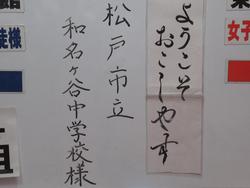 ようこそ
おこしやす
松戸市立
和名ヶ谷中学校様
徒様
女子